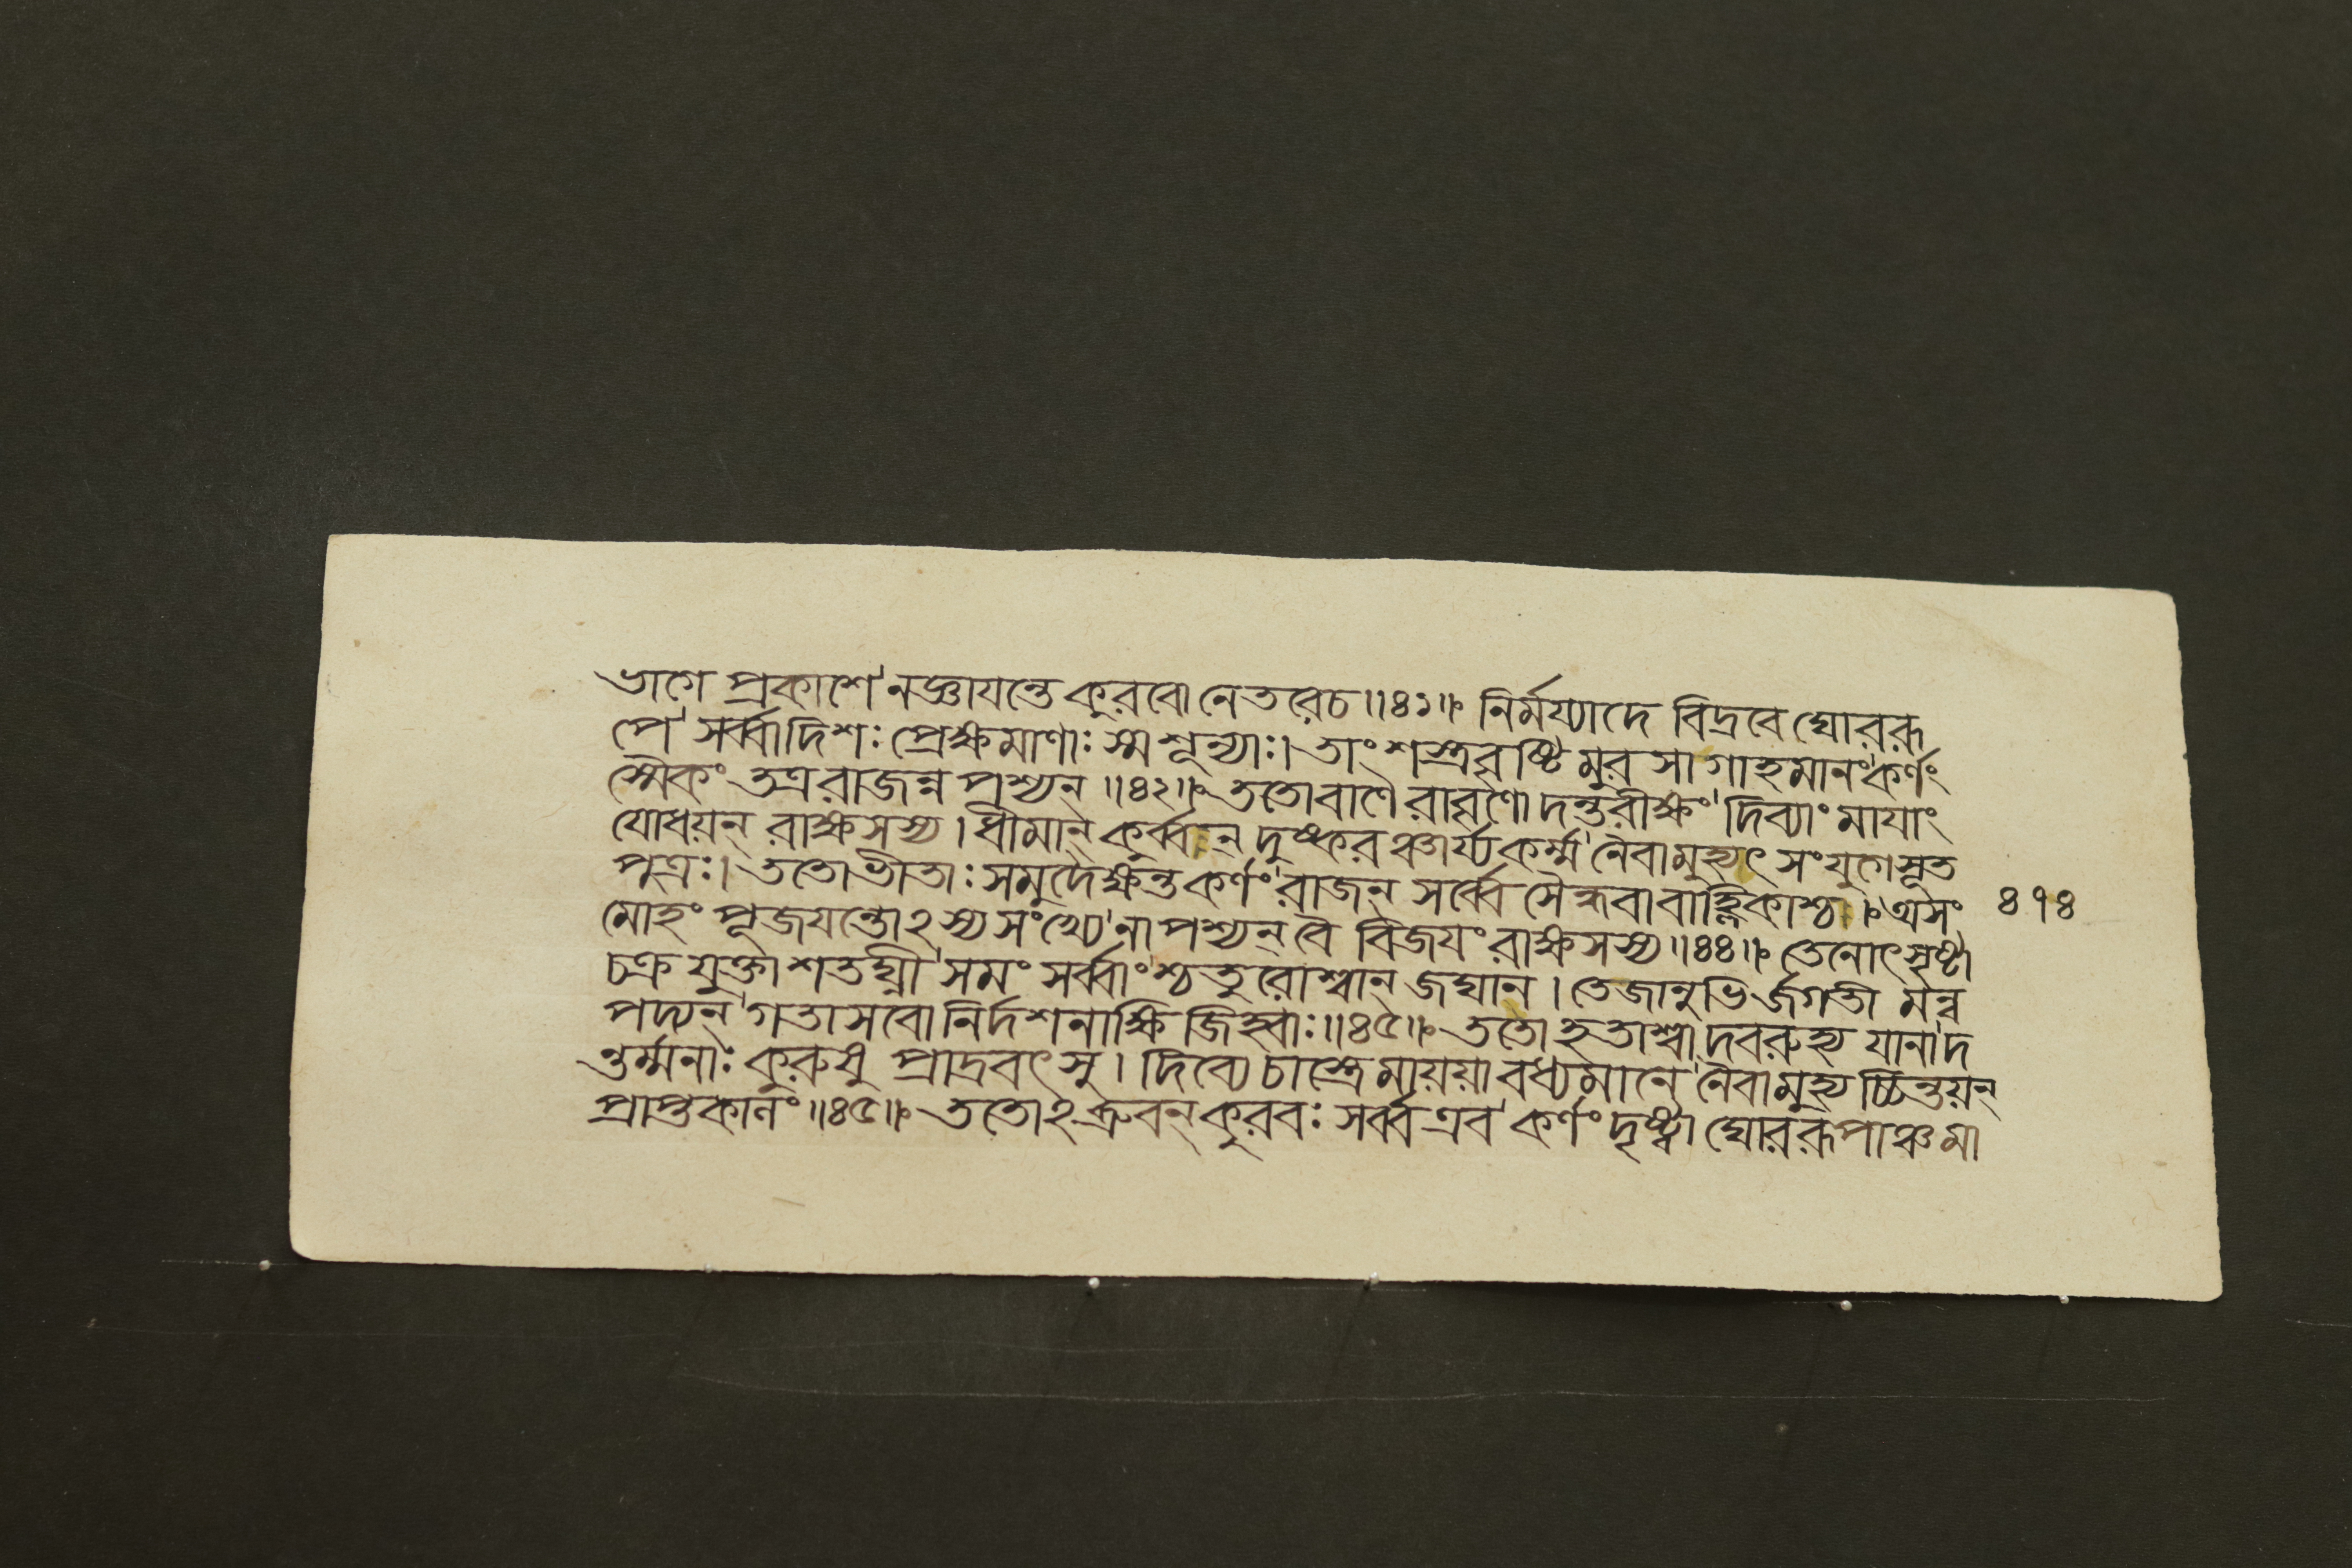 ভাগে প্রকাশে নজ্ঞাযন্তে কুরবো নেতরেচ॥৪১॥ নির্মর্য্যাদে বিদ্রবে ঘোররূ
পে সর্ব্বাদিশঃ প্রেক্ষমাণাঃ স্ম শূন্যাঃ। তাং শস্ত্রবৃষ্টিমুরসা গাহমানং কর্ণং
স্মৈকং তত্ররাজন্নপশ্যন্॥৪২॥ ততোবাণৈরাবৃণোদন্তরীক্ষং দিব্যাং মাযাং
যোধয়ন্ রাক্ষসস্য। ধীমান্ কুর্ব্বন্ দুষ্করঞ্চার্য্যকর্ম্ম নৈবামুহ্যৎ সংযুগেসূত
পুত্রঃ। ততোভীতাঃ সমুদৈক্ষন্ত কর্ণং রাজন্ সর্ব্বে সৈন্ধবাবাহ্লিকাশ্চ। অসং
মোহং পূজযন্তোঽস্য সংখ্যে নাপশ্যন্ বৈ বিজযং রাক্ষসস্য॥৪৪॥ তেনোৎসৃষ্টা
চক্রযুক্তা শতঘ্নী সমং সর্ব্বাংশ্চতুরোশ্বান্ জঘান। তেজানুভির্জগতী মন্ব
পদ্যন্ গতাসবো নির্দশনাক্ষিজিহ্বাঃ॥৪৫॥ ততো হতাশ্বাদবরুহ্য যানাদ
ন্তর্ম্মনাঃ কুরুষু প্রাদ্রবৎসু। দিব্যে চাস্ত্রে মায়য়া বধ্যমানে নৈবামুহ্যচ্চিন্তয়ন্
প্রাপ্তকালং॥৪৫॥ ততোঽব্রুবন্ কুরবঃ সর্ব্ব এব কর্ণং দৃষ্ট্বা ঘোররূপাঞ্চমা
৪৭৪